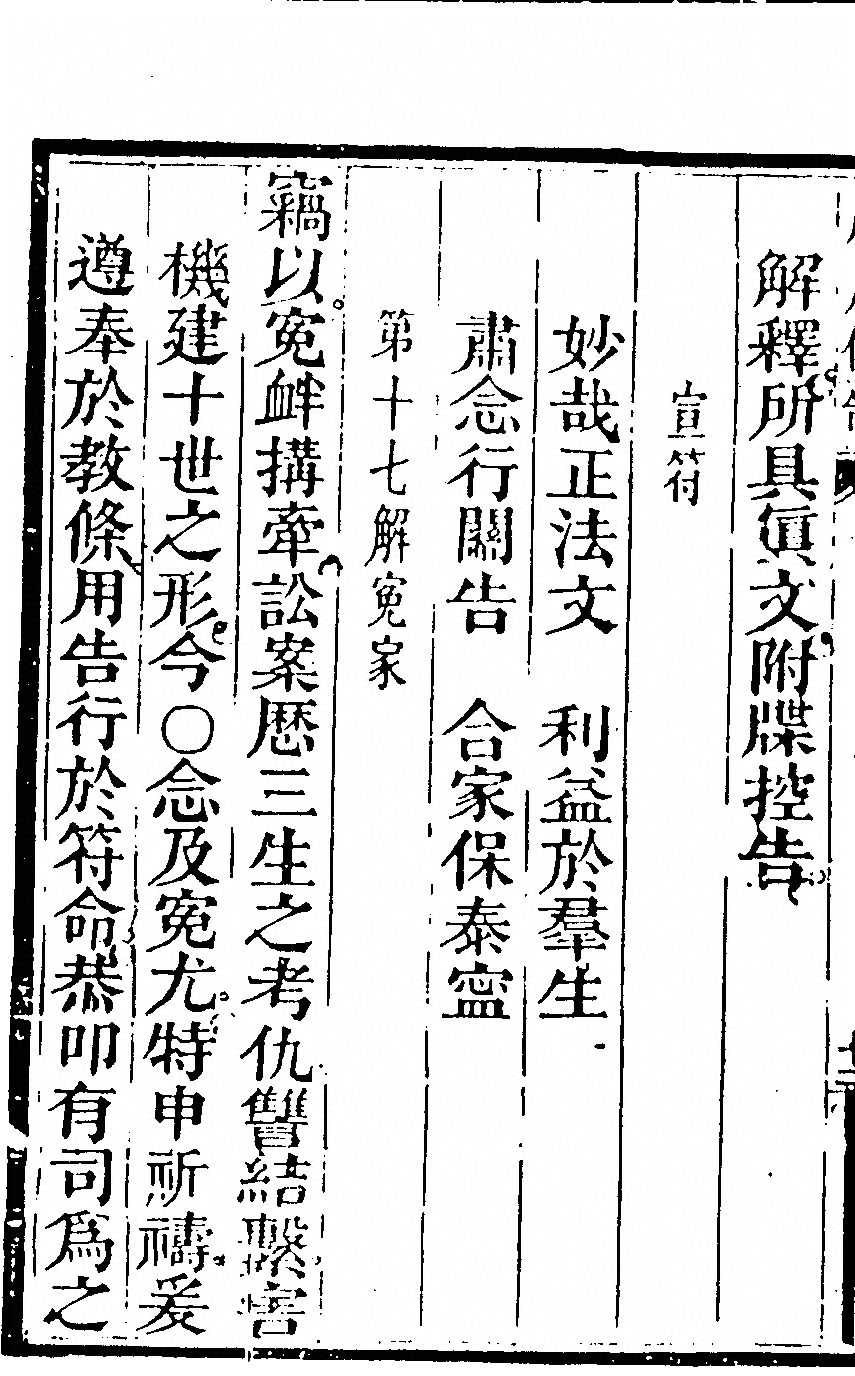 解釋所具眞文附牒控告
宣符
妙哉正法文　利益於羣生
肅念行關告　合家保泰寍
第十七解寃家
竊以寃衅搆牽訟案歷三生之考仇讐結繫害
機建十世之形今〇念及寃尤特申祈禱爰
遵奉於教條用告行於符命恭叩有司爲之